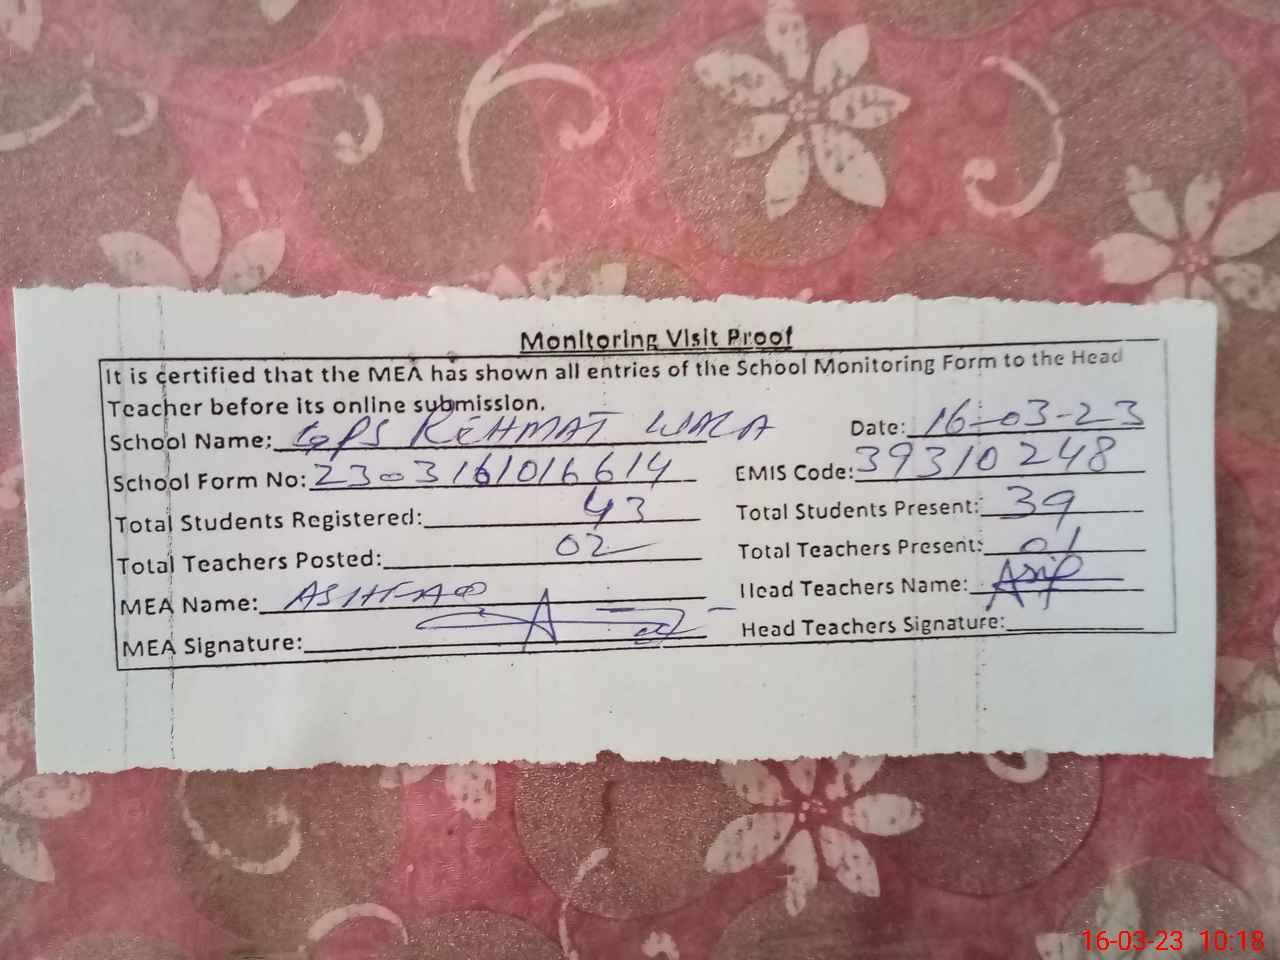 Monitoring Visit Proof
It is certified that the MEA has shown all entries of the School Monitoring Form to the Head
Teacher before its online submission.
School Name: GPS REHMAT WALA Date: 16-03-23
School Form No: 23003161016614 EMIS Code: 39310248
Total Students Registered: 43 Total Students Present: 39
Total Teachers Posted: 02 Total Teachers Present: 01
MEA Name: ASHFAQ Head Teachers Name: Asif
MEA Signature: Head Teachers Signature:
16-03-23 10:18